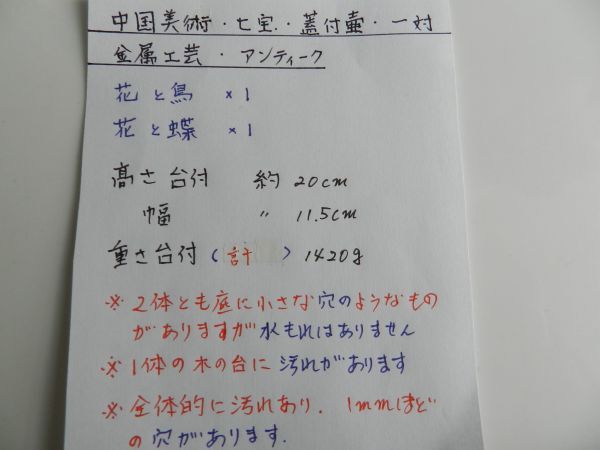 中国美術・七宝・蓋付壷・一対
金属工芸・アンティーク
花と鳥 ×1
花と蝶 ×1
高さ台付 約 20cm
幅 〃 11.5cm
重さ台付(計)1420g
※2体とも底に小さな穴のようなもの
がありますが水もれはありません
※1体の木の台に汚れがあります
※全体的に汚れあり. 1mmほど
の穴があります.